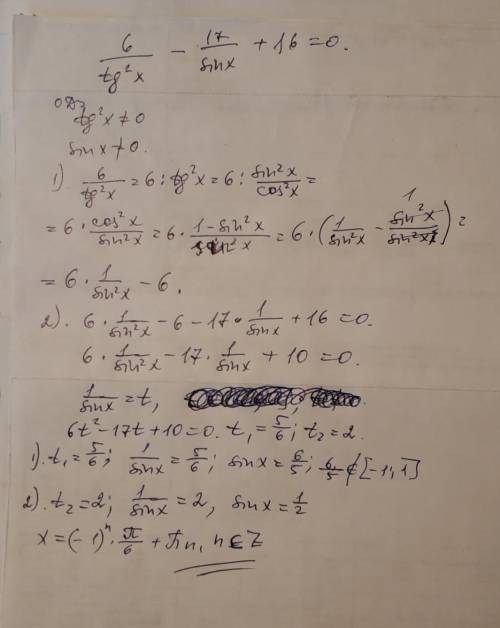 6/tg²x − 17/sinx + 16 = 0.
ОДЗ
tg²x ≠ 0
sinx ≠ 0.
1) 6/tg²x = 6 : tg²x = 6 : sin²x/cos²x =
= 6 · cos²x/sin²x = 6 · (1 − sin²x)/sin²x = 6 · (1/sin²x − sin²x/sin²x 1) =
= 6 · 1/sin²x − 6.
2). 6 · 1/sin²x − 6 − 17 · 1/sinx + 16 = 0.
6 · 1/sin²x − 17 · 1/sinx + 10 = 0.
1/sinx = t,
6t² − 17t + 10 = 0. t₁ = 5/6; t₂ = 2.
1). t₁ = 5/6; 1/sinx = 5/6; sinx = 6/5; 6/5 ∉ [−1, 1]
2). t₂ = 2; 1/sinx = 2, sinx = 1/2
x = (−1)ⁿ · π/6 + πn, n ∈ Z